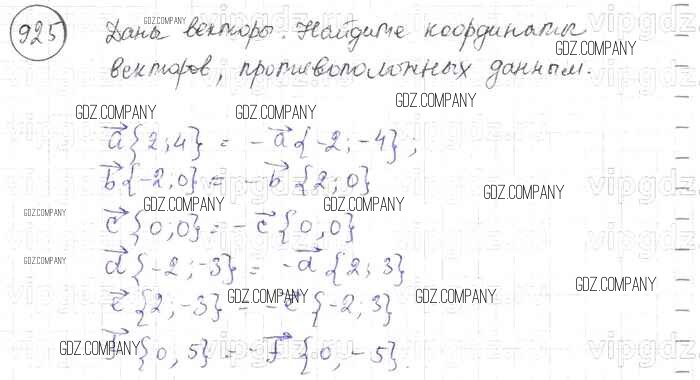 925 Даны векторы. Найдите координаты
векторов, противоположных данным.
a⃗{2;4} = -a⃗{-2;-4};
b⃗{-2;0} = -b⃗ {2;0}
c⃗{0,0} = -c⃗{0,0}
d⃗{-2;-3} = -d⃗{2;3}
e⃗{2;-3} = -e⃗{-2;3}
f⃗{0,5} = -f⃗{0,-5}.
GDZ.COMPANY
GDZ.COMPANY
GDZ.COMPANY
GDZ.COMPANY
GDZ.COMPANY
GDZ.COMPANY
GDZ.COMPANY
GDZ.COMPANY
GDZ.COMPANY
GDZ.COMPANY
GDZ.COMPANY
GDZ.COMPANY
GDZ.COMPANY
GDZ.COMPANY
vipgdz